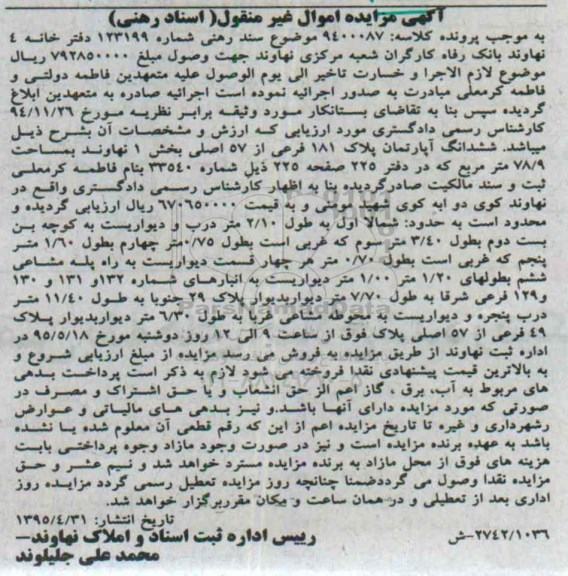 آگهی مزایده اموال غیر منقول( اسناد رهنی)
به موجب پرونده کلاسه: ۹۴۰۰۰۸۷ موضوع سند رهنی شماره ۱۲۳۱۹۹ دفتر خانه ۴
نهاوند بانک رفاه کارگران شعبه مرکزی نهاوند جهت وصول مبلغ ۷۹۲۸۵۰۰۰۰ ریال
موضوع لازم الاجرا و خسارت تاخیر الی یوم الوصول علیه متعهدین فاطمه دولتی و
فاطمه کرمعلی مبادرت به صدور اجرائیه نموده است اجرائیه صادره به متعهدین ابلاغ
گردیده سپس بنا به تقاضای بستانکار مورد وثیقه برابر نظریه مورخ ۹۴/۱۱/۲۶
کارشناس رسمی دادگستری مورد ارزیابی که ارزش و مشخصات آن بشرح ذیل
میباشد. ششدانگ آپارتمان پلاک ۱۸۱ فرعی از ۵۷ اصلی بخش ۱ نهاوند بمساحت
۷۸/۹ متر مربع که در دفتر ۲۲۵ صفحه ۲۲۵ ذیل شماره ۳۳۵۴۰ بنام فاطمه کرمعلی
ثبت و سند مالکیت صادرگردیده بنا به اظهار کارشناس رسمی دادگستری واقع در
نهاوند کوی دو ابه کوی شهید سیفی و به قیمت ۶۷۰۶۵۰۰۰۰ ریال ارزیابی گردیده و
محدود است به حدود: شمالا اول به طول ۲/۱۰ متر درب و دیواریست به کوچه بن
بست دوم بطول ۳/۴۰ متر سوم که غربی است بطول ۰/۷۵متر چهارم بطول ۱/۶۰ متر
پنجم که غربی است بطول ۰/۷۰ متر هر چهار قسمت دیواریست به راه پله مشاعی
ششم بطولهای ۱/۲۰ متر ۱/۰۰ متر دیواریست به انبارهای شماره ۱۳۲و ۱۳۱ و ۱۳۰
و۱۲۹ فرعی شرقا به طول ۷/۷۰ متر دیواربدیوار پلاک ۲۹ جنوبا به طول ۱۱/۴۰ متر
درب پنجره و دیواریست به حیاط مشاعی غربا به طول ۶/۳۰ متر دیواربدیوار پلاک
۴۹ فرعی از ۵۷ اصلی پلاک فوق از ساعت ۹ الی ۱۲ روز دوشنبه مورخ ۹۵/۵/۱۸ در
اداره ثبت نهاوند از طریق مزایده به فروش می رسد مزایده از مبلغ ارزیابی شروع و
به بالاترین قیمت پیشنهادی نقدا فروخته می شود لازم به ذکر است پرداخت بدهی
های مربوط به آب، برق ، گاز اعم از حق انشعاب و یا حق اشتراک و مصرف در
صورتی که مورد مزایده دارای آنها باشد.و نیز بدهی های مالیاتی و عوارض
رشهرداری و غیره تا تاریخ مزایده اعم از این که رقم قطعی آن معلوم شده یا نشده
باشد به عهده برنده مزایده است و نیز در صورت وجود مازاد وجوه پرداختی بابت
هزینه های فوق از محل مازاد به برنده مزایده مسترد خواهد شد و نیم عشر و حق
مزایده نقدا وصول می گرددضمنا چنانچه روز مزایده تعطیل رسمی گردد مزایده روز
اداری بعد از تعطیلی و در همان ساعت و مکان مقرربرگزار خواهد شد.
تاریخ انتشار: ۱۳۹۵/۴/۳۱
رییس اداره ثبت اسناد و املاک نهاوند–
محمد علی جلیلوند
۲۷۴۲/۱۰۳۶–ش